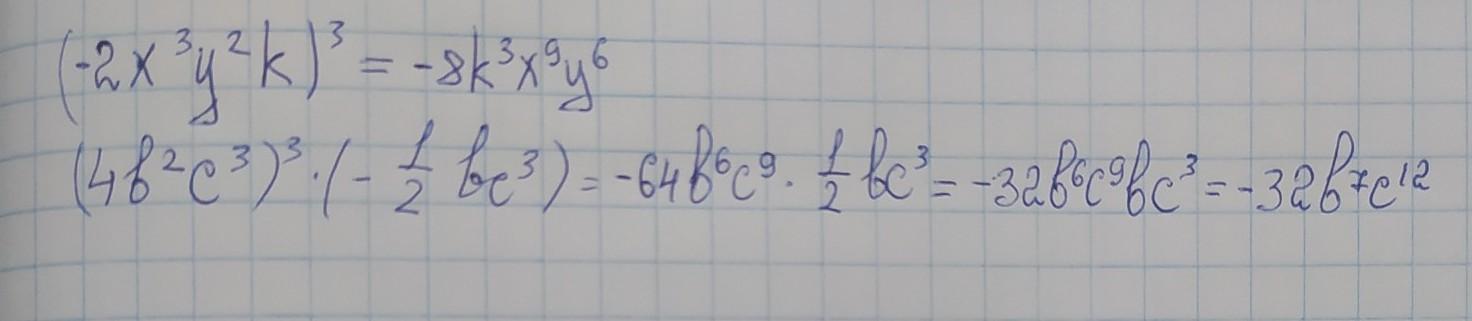 (-2x³y²k)³ = -8k³x⁹y⁶
(4b²c³)³·(-1/2 bc³) = -64b⁶c⁹·1/2 bc³ = -32b⁶c⁹bc³ = -32b⁷c¹²